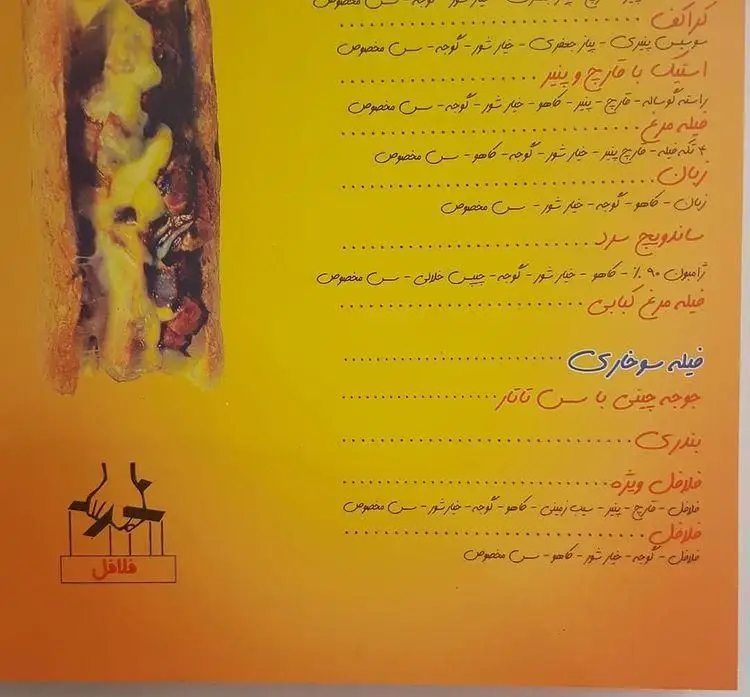 خیار شور - گوجه - سس مخصوص
کراکف
سوسیس پنیری - پیاز جعفری - خیار شور - گوجه - سس مخصوص
استیک با قارچ و پنیر
راسته گوساله - قارچ - پنیر - کاهو - خیار شور - گوجه - سس مخصوص
فیله مرغ
۴ تکه فیله - قارچ پنیر - خیار شور - گوجه - کاهو - سس مخصوص
زبان
زبان - کاهو - گوجه - خیار شور - سس مخصوص
ساندویچ سرد
ژامبون ۹۰ ٪ - کاهو - خیار شور - گوجه - چیپس خلالی - سس مخصوص
فیله مرغ کبابی
فیله سوخاری
جوجه چینی با سس تاتار
بندری
فلافل ویژه
فلافل - قارچ - پنیر - سیب زمینی - کاهو - گوجه - خیار شور - سس مخصوص
فلافل
فلافل - گوجه - خیار شور - کاهو - سس مخصوص
فلافل